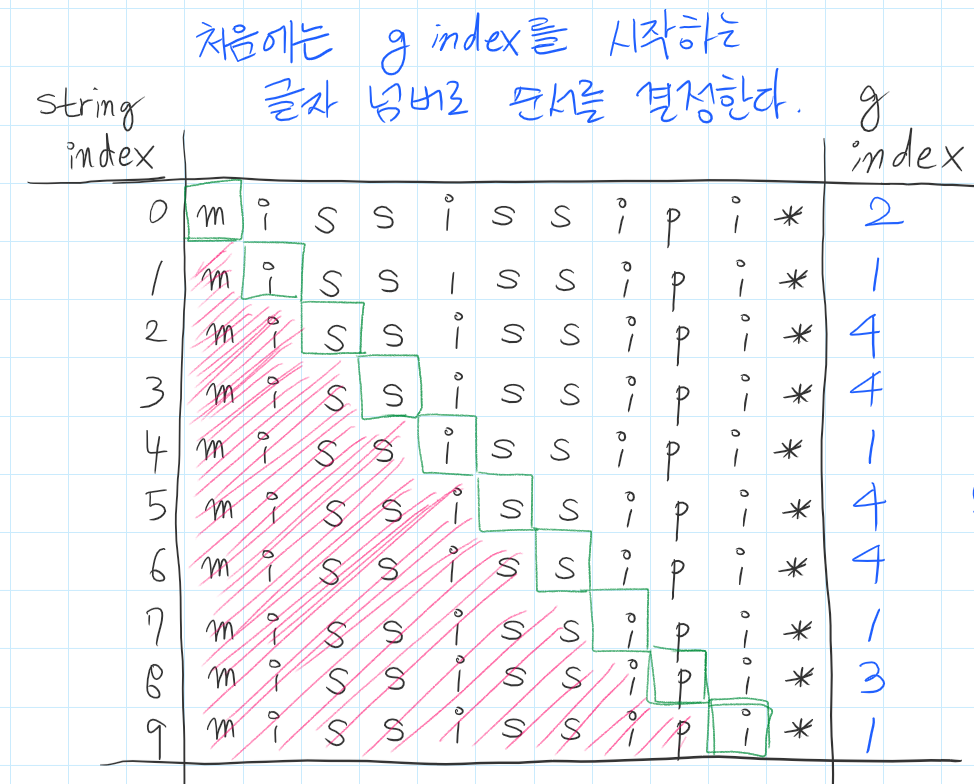 처음에는 g index를 시작하는
글자 넘버로 순서를 결정한다.
string index g index
0 m i s s i s s i p i * 2
1 m i s s i s s i p i * 1
2 m i s s i s s i p i * 4
3 m i s s i s s i p i * 4
4 m i s s i s s i p i * 1
5 m i s s i s s i p i * 4
6 m i s s i s s i p i * 4
7 m i s s i s s i p i * 1
8 m i s s i s s i p i * 3
9 m i s s i s s i p i * 1